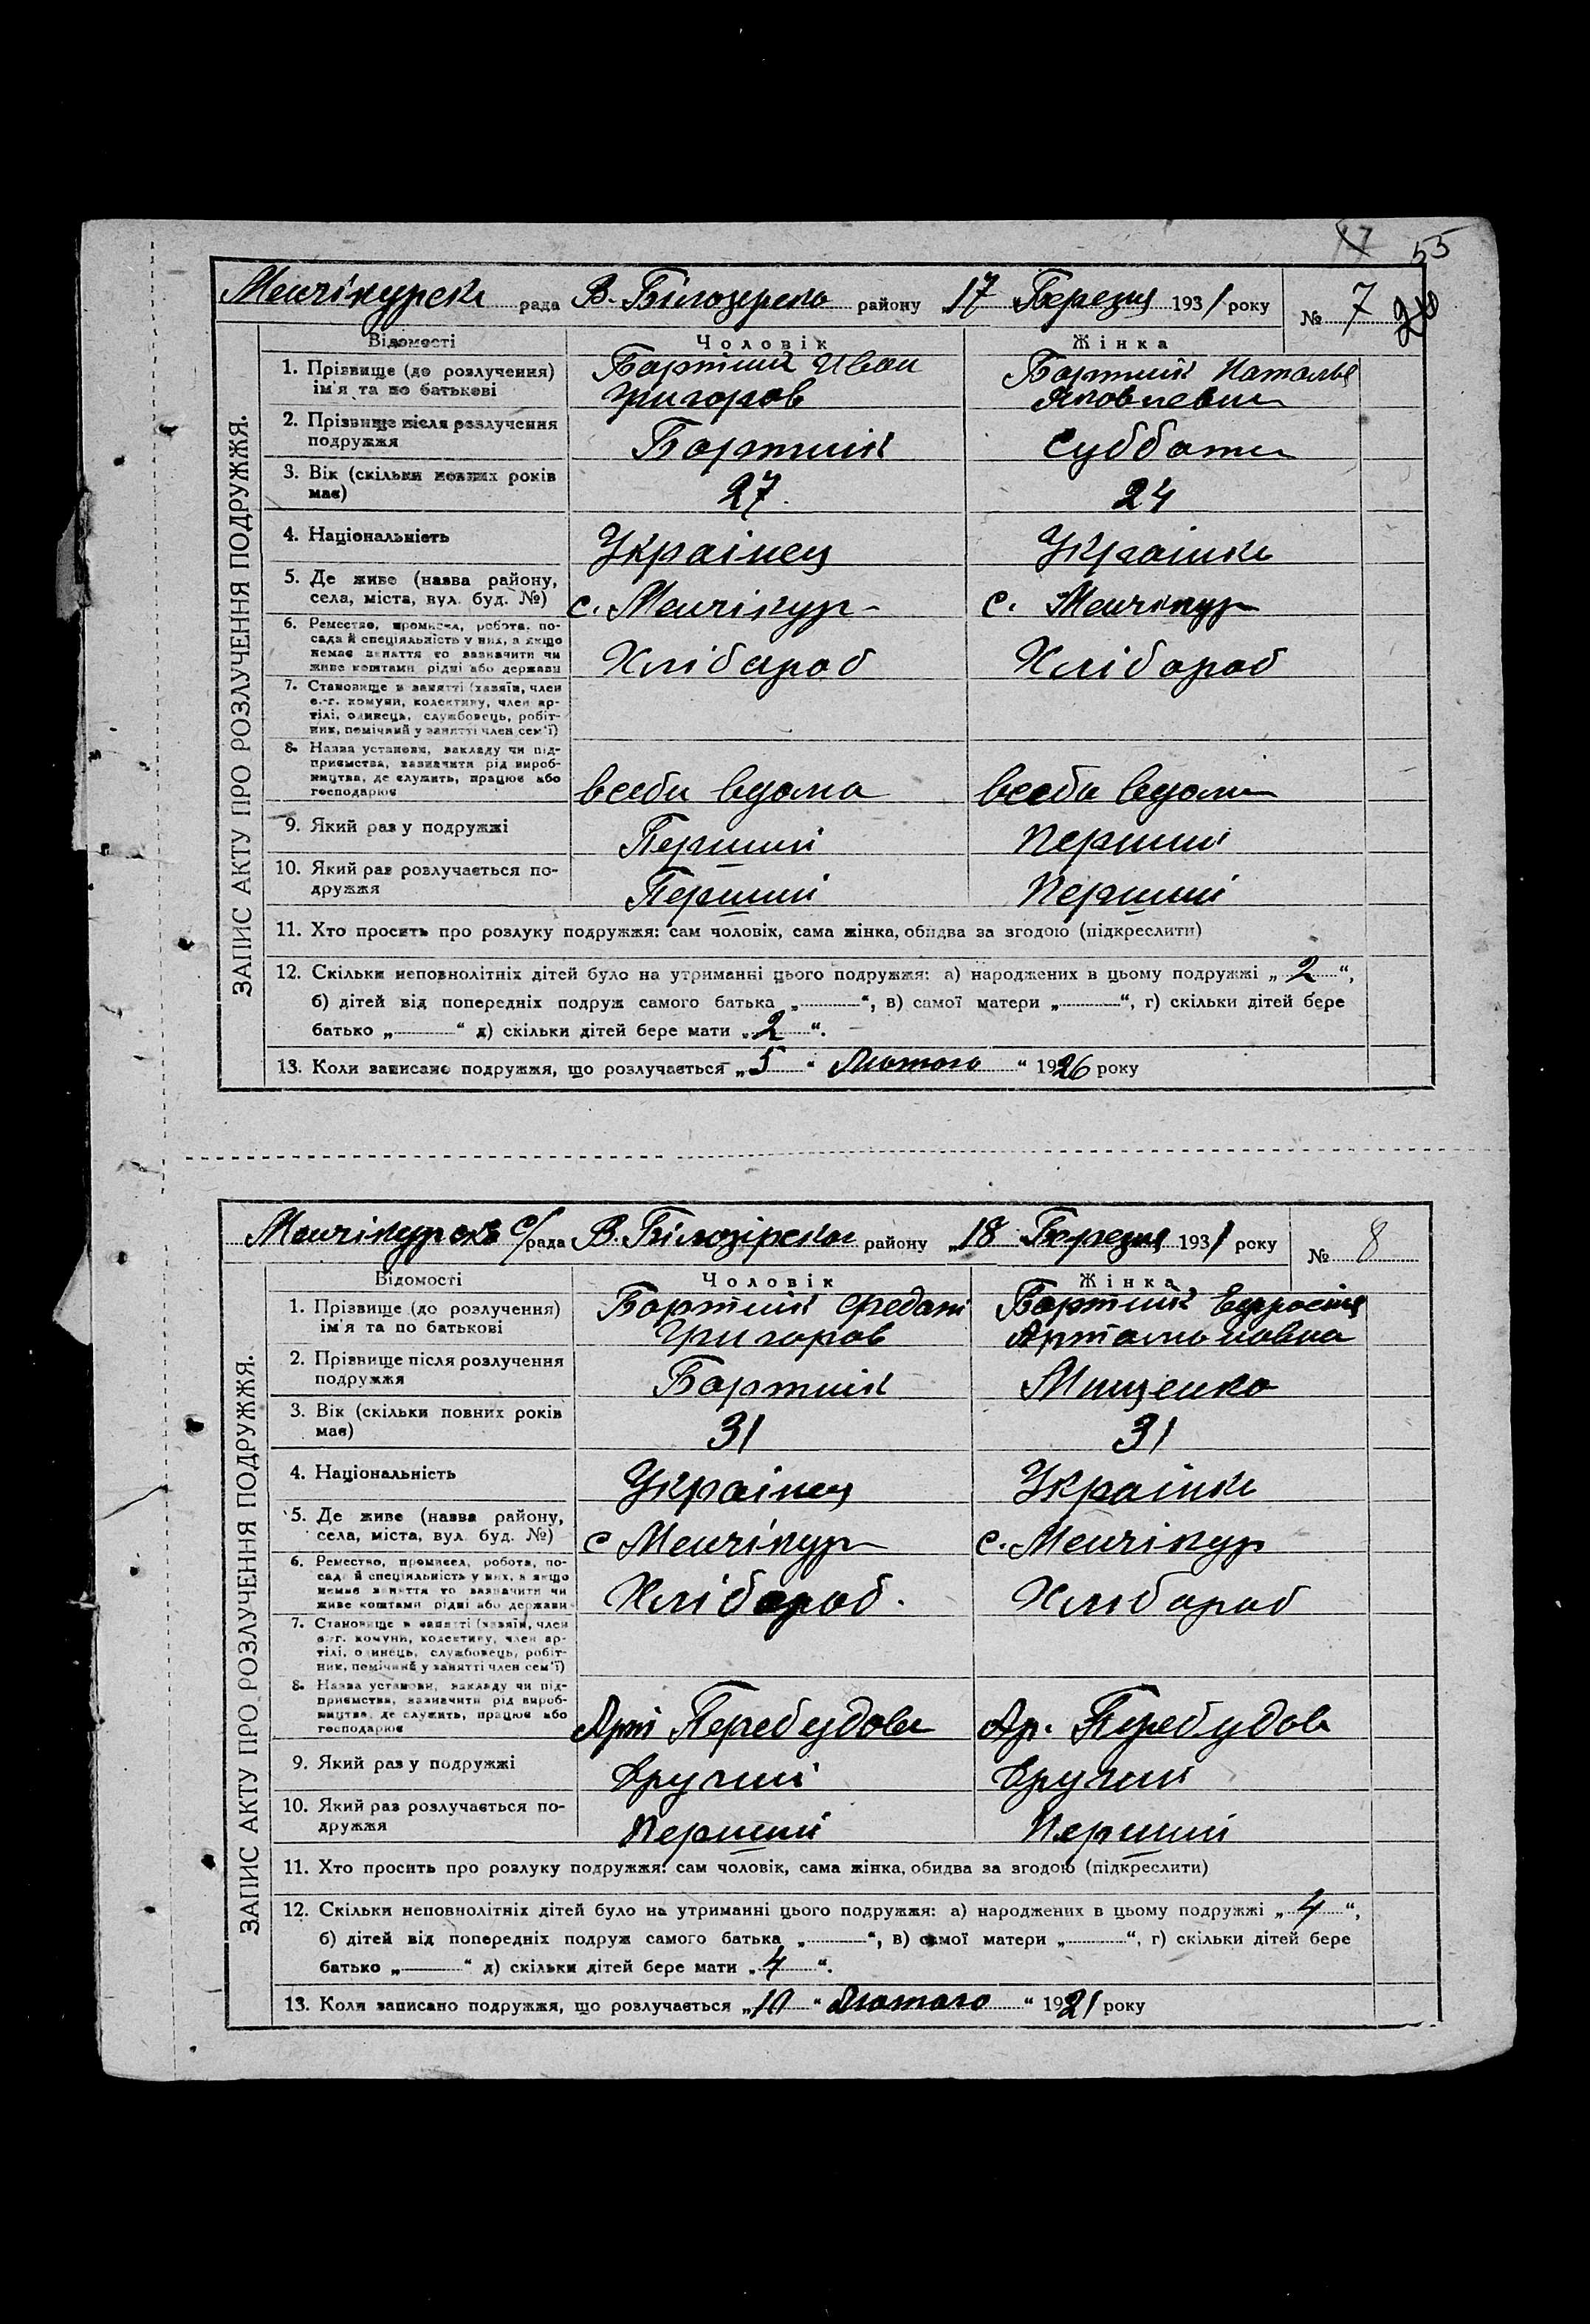 17 55
Менчікурска рада В. Білозерско району „17 Березня 1931 року № 7
26
ЗАПИС АКТУ ПРО РОЗЛУЧЕННЯ ПОДРУЖЖЯ.
Відомості Чоловік Жінка
1. Прізвище (до розлучення) Бортний Иван Бортній Наталья
ім'я та по батькові Григоров Яковлевна
2. Прізвище після розлучення
подружжя Бортній Суббота
3. Вік (скільки повних років
має) 27. 24
4. Національність Українец Українка
5. Де живе (назва району,
села, міста, вул. буд. №) с. Менчікур с. Менчикур
6. Ремество, промисел, робота, по-
сада й спеціяльність у них, а якщо
немає заняття то зазначити чи
живе коштами рідні або держави Хлібароб Хлібороб
7. Становище в занятті (хазяїн, член
с.-г. комуни, колективу, член ар-
тілі, одинець, службовець, робіт-
ник, помічний у занятті член сем'ї)
8. Назва установи, закладу чи під-
приємства, зазначити рід вироб-
ництва, де служить, працює або
господарює всеби вдома всеба вдома
9. Який раз у подружжі Перший Перший
10. Який раз розлучається по-
дружжя Перший Перший
11. Хто просить про розлуку подружжя: сам чоловік, сама жінка, обидва за згодою (підкреслити)
12. Скільки неповнолітніх дітей було на утриманні цього подружжя: а) народжених в цьому подружжі „2“,
б) дітей від попередніх подруж самого батька „—“, в) самої матери „—“, г) скільки дітей бере
батько „—“ д) скільки дітей бере мати „2“.
13. Коли записано подружжя, що розлучається „5“ Лютого “ 1926 року
Менчікурска с/рада В. Білозірска району „18 Березня 1931 року № 8
ЗАПИС АКТУ ПРО РОЗЛУЧЕННЯ ПОДРУЖЖЯ.
Відомості Чоловік Жінка
1. Прізвище (до розлучення) Бортній Бортній Ефросінія
ім'я та по батькові Григоров Артамоновна
2. Прізвище після розлучення
подружжя Бортній Мищенко
3. Вік (скільки повних років
має) 31 31
4. Національність Українец Українка
5. Де живе (назва району,
села, міста, вул. буд. №) с Менчікур с. Менчікур
6. Ремество, промисел, робота, по-
сада й спеціяльність у них, а якщо
немає заняття то зазначити чи
живе коштами рідні або держави Хлібороб. Хлібороб
7. Становище в занятті (хазяїн, член
с.-г. комуни, колективу, член ар-
тілі, одинець, службовець, робіт-
ник, помічний у занятті член сем'ї)
8. Назва установи, закладу чи під-
приємства, зазначити рід вироб-
ництва, де служить, працює або
господарює Арті Перебудова Ар. Перебудова
9. Який раз у подружжі Другий Другий
10. Який раз розлучається по-
дружжя Перший Перший
11. Хто просить про розлуку подружжя: сам чоловік, сама жінка, обидва за згодою (підкреслити)
12. Скільки неповнолітніх дітей було на утриманні цього подружжя: а) народжених в цьому подружжі „4“,
б) дітей від попередніх подруж самого батька „—“, в) самої матери „—“, г) скільки дітей бере
батько „—“ д) скільки дітей бере мати „4“.
13. Коли записано подружжя, що розлучається „10“ Лютого “ 1921 року